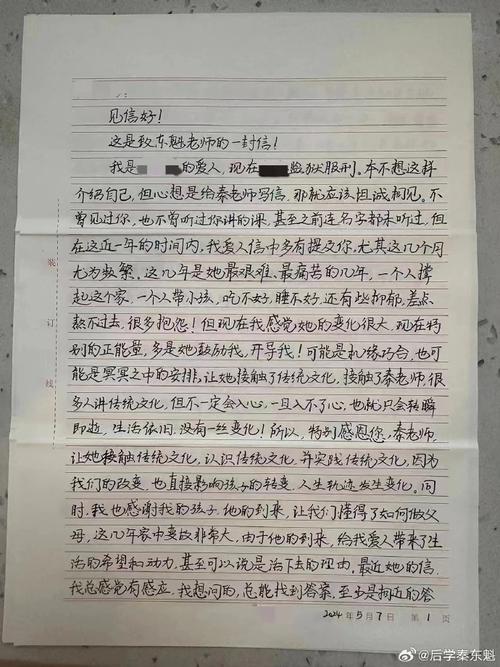 见信好!
这是致东魁老师的一封信!
我是 的爱人,现在 监狱服刑。本不想这样
介绍自己,但心想是给秦老师写信,那就应该坦诚相见。不
曾见过你,也不曾听过你讲的课,甚至之前连名字都未听过,但
在这近一年的时间内,我爱人信中多有提及你,尤其这几个月
尤为频繁。这几年是她最艰难、最痛苦的几年,一个人撑
起这个家,一个人带小孩,吃不好,睡不好,还有些抑郁,差点
熬不过去,很多抱怨!但现在我感觉她的变化很大,现在特
别的正能量,多是她鼓励我,开导我!可能是机缘巧合,也可
能是冥冥之中的安排,让她接触了传统文化,接触了秦老师,很
多人讲传统文化,但不一定会入心,一旦入不了心,也就只会转瞬
即逝,生活依旧,没有一丝变化!所以,特别感恩您,秦老师,
让她接触传统文化,认识传统文化,并实践传统文化,因为
我们的改变,也直接影响孩子的转变,人生轨迹发生变化。同
时,我也感谢我的孩子,他的到来,让我们懂得了如何做父
母,这几年家中变故非常大,由于他的到来,给我爱人带来了生
活的希望和动力,甚至可以说是活下去的理由。最近她的信,
我总感觉有感应,我想问的,总能找到答案,至少是接近的答
装
订
线
2024年5月7日 第1页
@后学秦东魁